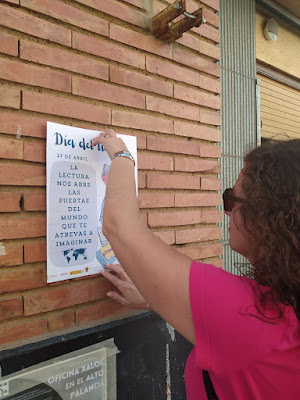 Día del
23 DE ABRIL
LA
LECTURA
NOS ABRE
LAS
PUERTAS
DEL
MUNDO
QUE TE
ATREVAS A
IMAGINAR
OFICINA XALOC
EN EL ALTO
PALANCIA